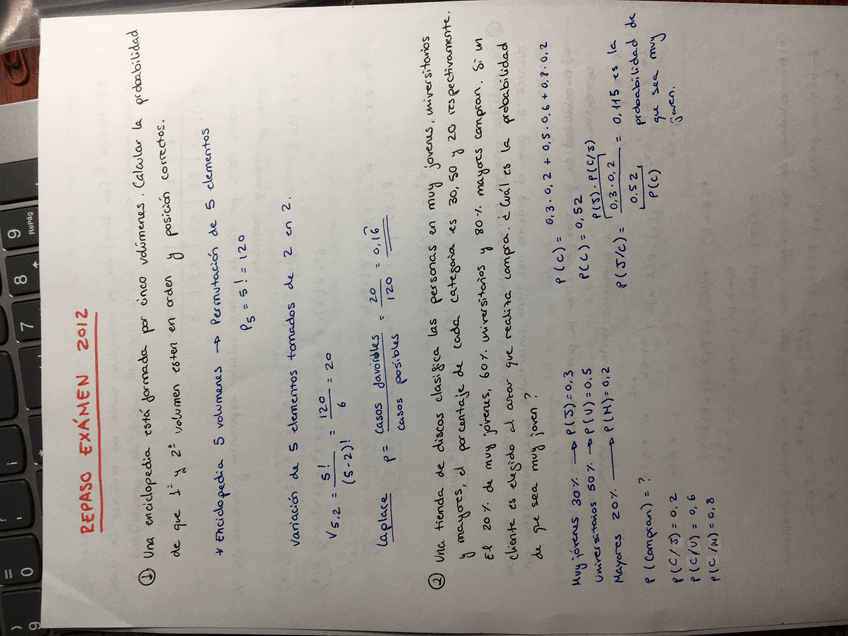 REPASO EXÁMEN 2012
① Una enciclopedia está formada por cinco volúmenes. Calcular la probabilidad
de que 1º y 2º volumen esten en orden y posición correctos.
* Enciclopedia 5 volumenes → Permutación de 5 elementos
P5 = 5! = 120
Variación de 5 elementos tomados de 2 en 2.
V5,2 = 5! / (5-2)! = 120 / 6 = 20
Laplace P = casos favorables / casos posibles = 20 / 120 = 0,16
② Una tienda de discos clasifica las personas en muy jovenes, universitarios
y mayores, el porcentaje de cada categoría es 30, 50 y 20 respectivamente.
El 20% de muy jóvenes, 60% universitarios y 80% mayores compran. Si un
cliente es elegido al azar que realiza compra. ¿Cuál es la probabilidad
de que sea muy joven?
Muy jóvenes 30% → P(J) = 0,3
Universitarios 50% → P(U) = 0,5
Mayores 20% → P(M) = 0,2
P(compran) = ?
P(C/J) = 0,2
P(C/U) = 0,6
P(C/M) = 0,8
P(C) = 0,3·0,2 + 0,5·0,6 + 0,8·0,2
P(C) = 0,52
P(J)·P(C/J)
P(J/C) = 0,3·0,2 / 0,52 = 0,115 es la
P(C)
probabilidad de
que sea muy
joven.
) 9
= 0
¡
7
8
9
RePág